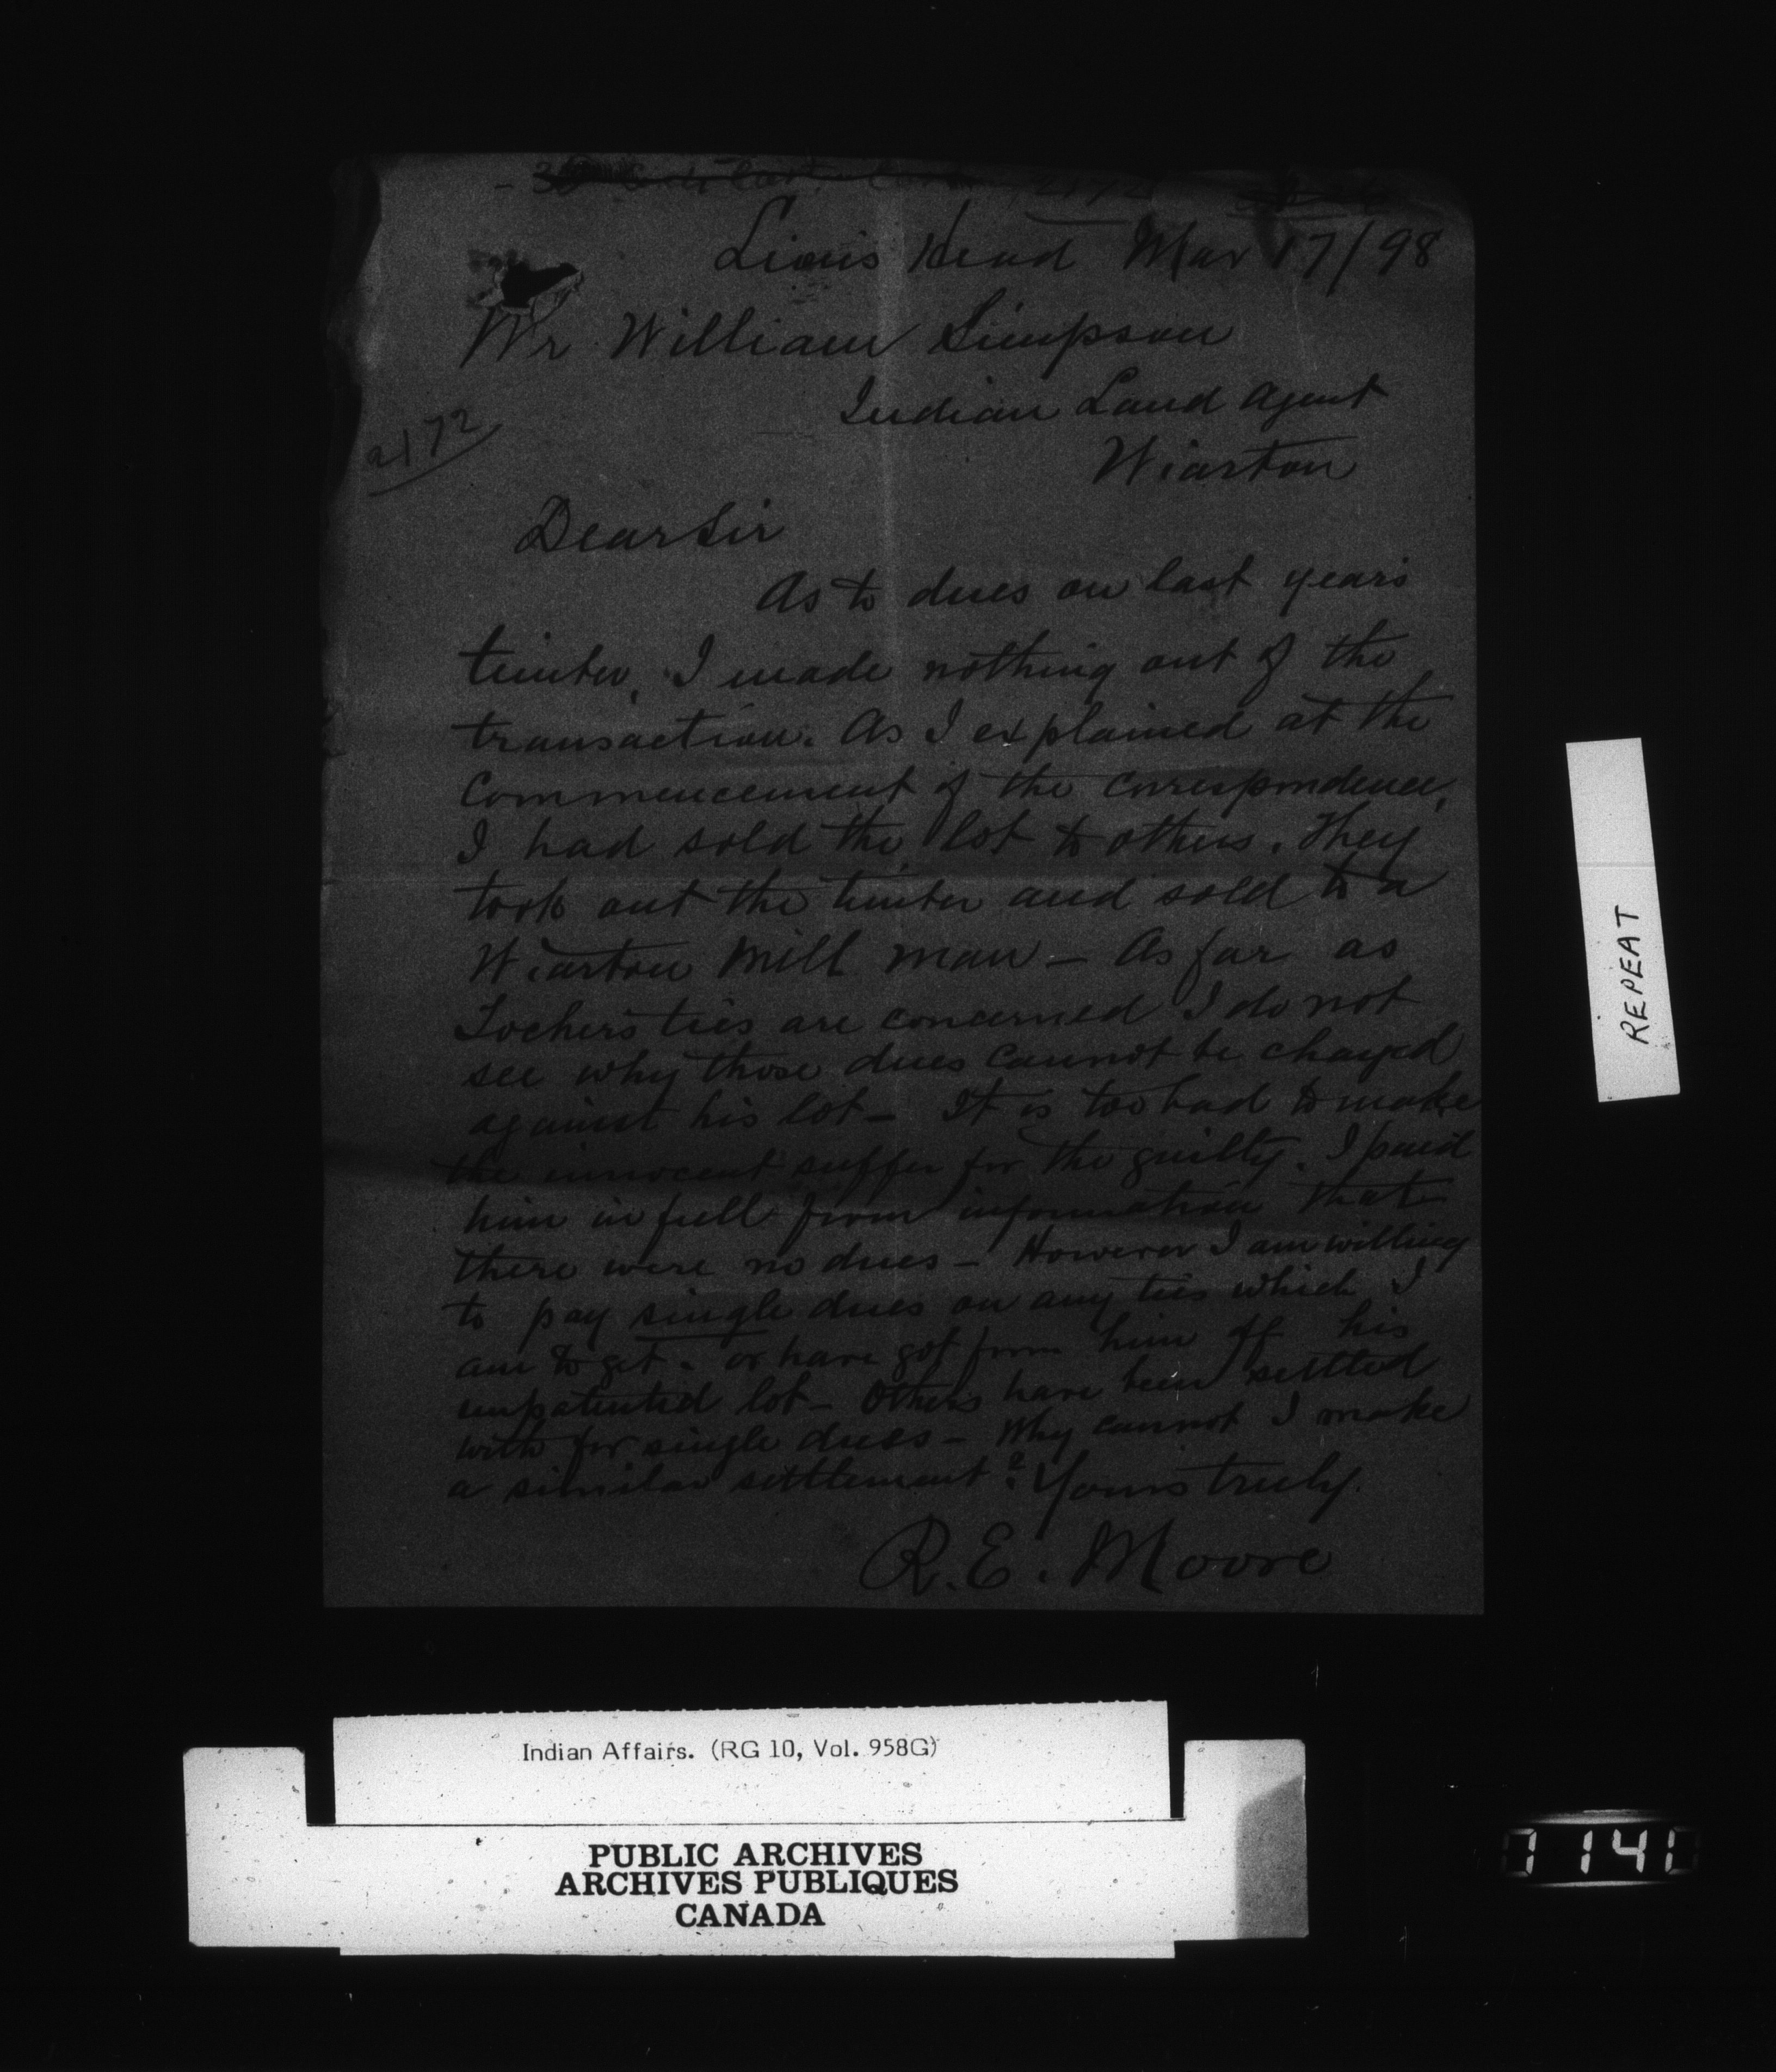 Lion's Head Mar 17/98
Mr William Simpson
Indian Land Agent
Wiarton
2172
Dear Sir
As to dues on last years
timber, I made nothing out of the
transaction. As I explained at the
commencement of the correspondence,
I had sold the lot to others. They
took out the timber and sold to a
Wiarton Mill man - As far as
ties are concerned I do not
see why those dues cannot be charged
against his lot - It is too bad to make
the innocent suffer for the guilty. I paid
him in full from information that
there were no dues - However I am willing
to pay single dues on any ties which I
am to get - or have got from him off his
unpatented lot - Others have been settled
with for single dues - Why cannot I make
a similar settlement? Yours truly.
R. E. Moore
REPEAT
Indian Affairs. (RG 10, Vol. 958G)
PUBLIC ARCHIVES
ARCHIVES PUBLIQUES
CANADA
1141